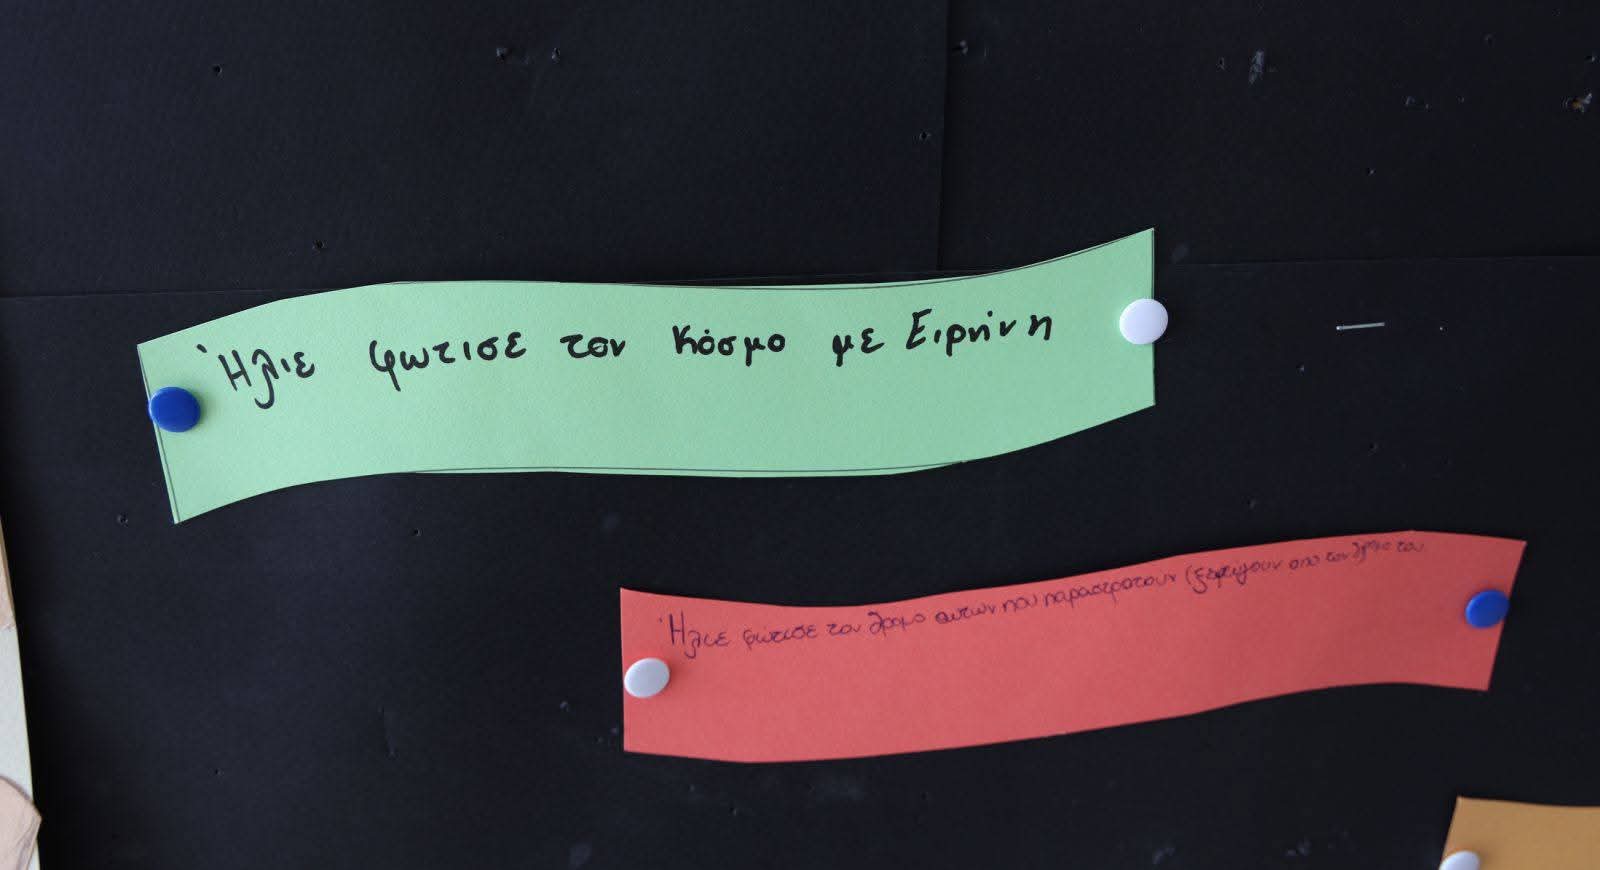 Ήλιε φωτισε τον κόσμο με Ειρήνη
Ήλιε φώτισε τον δρομο αυτων που παραστρατουν (ξεφευγουν απο τον δρομο του